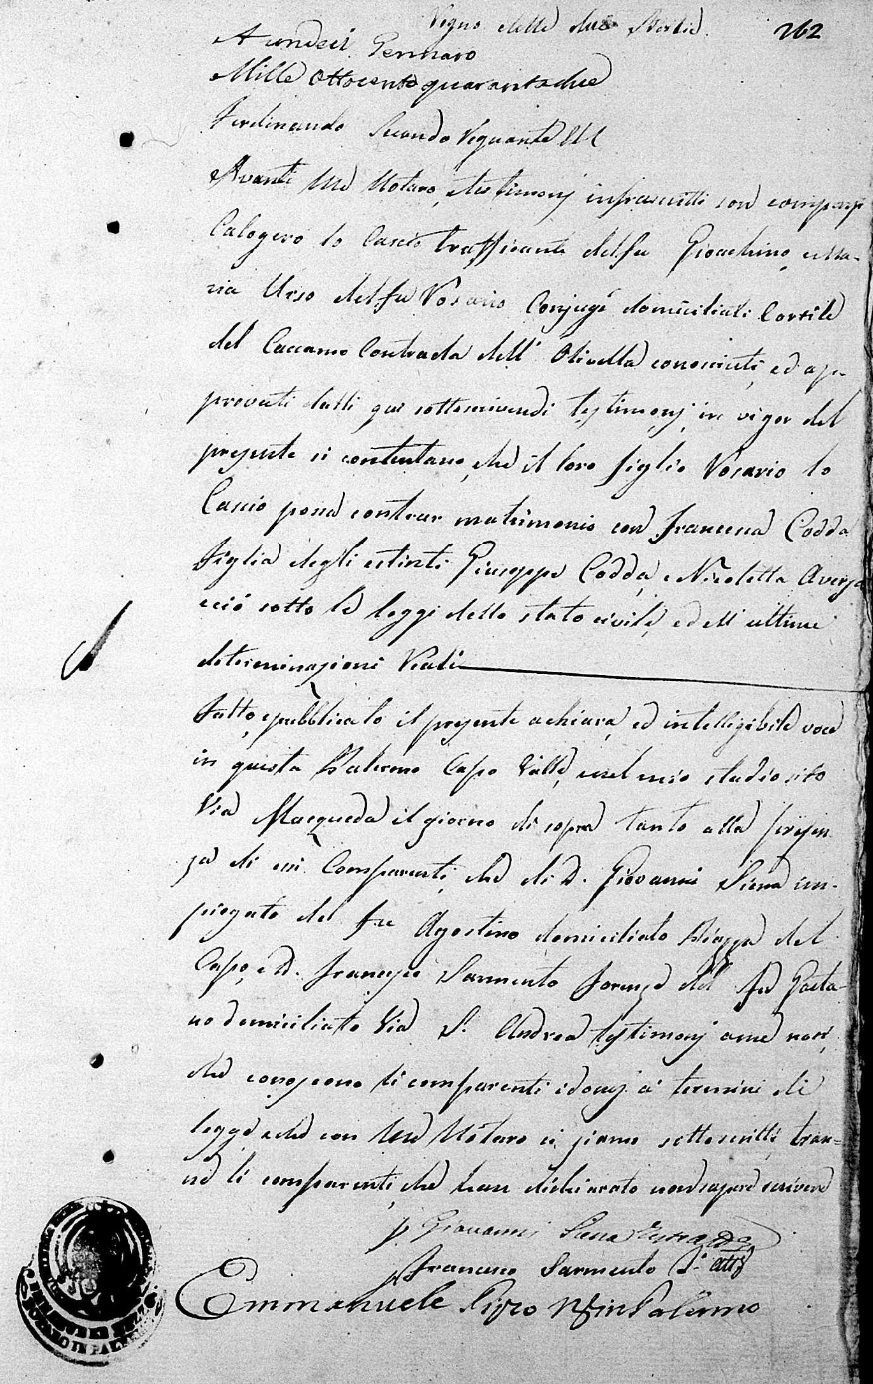 Regno delle due Sicilie. 262
A undeci Gennaro
Mille Ottocento quarantadue
Ferdinando Secondo Regnante
Avanti Me Notaro, e testimonj infrascritti son comparsi
Calogero lo Cascio trafficante del fu Gioachino, e Ma-
ria Urso del fu Rosario Conjugi domiciliati Cortile
del Caccamo Contrada dell' Olivella conosciuti, ed ap-
provati dalli qui sottoscrivendi testimonj, in vigor del
presente si contentano, che il loro figlio Rosario lo
Cascio possa contrar matrimonio con Francesca Codda
figlia degli estinti Giuseppe Codda, e Nicoletta Aversa
e ciò sotto le leggi dello stato civile, ed all' ultime
determinazioni Reali
Fatto, e pubblicato il presente a chiara, ed intelligibile voce
in questa Palermo Capo Valle, e nel mio studio sito
Via Macqueda il giorno di sopra tanto alla presen
za di essi Comparenti, che di D. Giovanni Siena im-
piegato del fu Agostino domiciliato Piazza del
Capo, e D. Francesco Sarmento del fu Gaeta-
no domiciliato Via S. Andrea testimonj a me noti,
che conoscono li comparenti idonej a' termini di
legge e che con Me Notaro si sono sottoscritti, tran=
ne li comparenti, che han dichiarato non sapere scrivere
Giovanni Siena
Francesco Sarmento
Emmanuele in Palermo